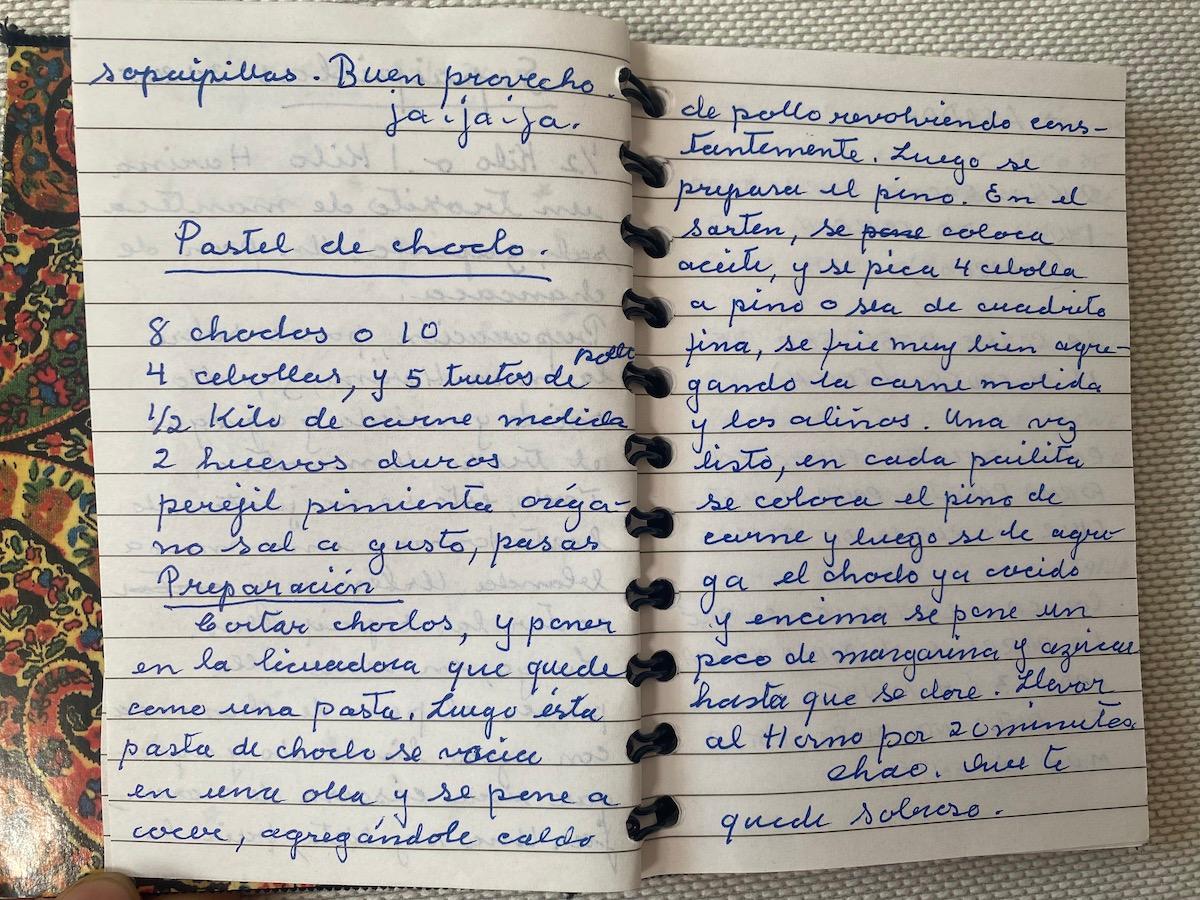 sopaipillas. Buen provecho.
ja-ja-ja.
Pastel de choclo.
8 choclos o 10
4 cebollas, y 5 trutos de pollo
1/2 Kilo de carne molida
2 huevos duros
perejil pimienta oréga-
no sal a gusto, pasas
Preparación
Cortar choclos, y poner
en la licuadora que quede
como una pasta. Luego ésta
pasta de choclo se vacia
en una olla y se pone a
cocer, agregándole caldo
de pollo revolviendo cons-
tantemente. Luego se
prepara el pino. En el
sarten, se pone coloca
aceite, y se pica 4 cebolla
a pino o sea de cuadrito
fina, se frie muy bien agre-
gando la carne molida
y los aliños. Una vez
listo, en cada pailita
se coloca el pino de
carne y luego se le agre
ga el choclo ya cocido
y encima se pone un
poco de margarina y azúcar
hasta que se dore. Llevar
al Horno por 20 minutos.
Chao. Que te
quede sabroso.